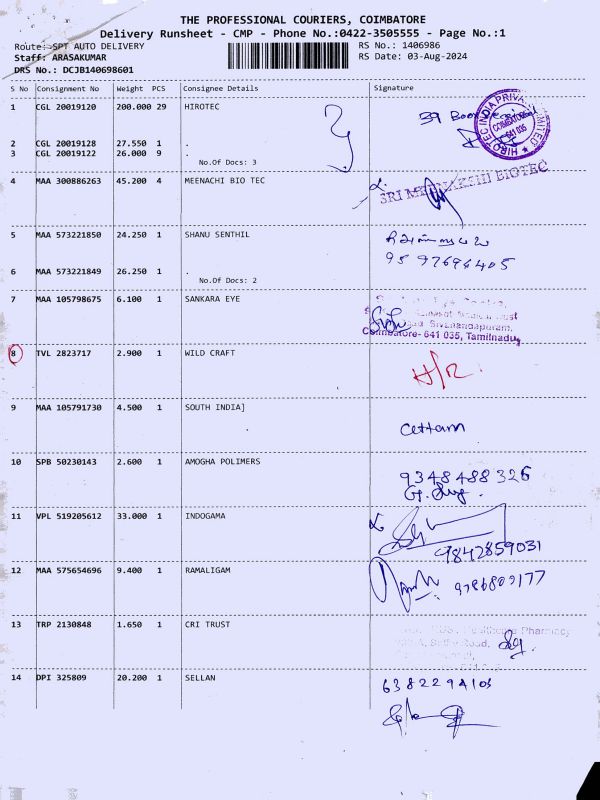 THE PROFESSIONAL COURIERS, COIMBATORE
Delivery Runsheet - CMP - Phone No.:0422-3505555 - Page No.:1
Route: SPT AUTO DELIVERY RS No.: 1406986
Staff: ARASAKUMAR RS Date: 03-Aug-2024
DRS No.: DCJB140698601
S No Consignment No Weight PCS Consignee Details Signature
1 CGL 20019120 200.000 29 HIROTEC 39
HIROTEC INDIA PRIVATE LIMITED COIMBATORE 641 035
2 CGL 20019128 27.550 1 .
3 CGL 20019122 26.000 9 .
No.Of Docs: 3
4 MAA 300886263 45.200 4 MEENACHI BIO TEC
SRI MEENAKSHI BIOTEC
5 MAA 573221850 24.250 1 SHANU SENTHIL
95 97696405
6 MAA 573221849 26.250 1 .
No.Of Docs: 2
7 MAA 105798675 6.100 1 SANKARA EYE
Sivanandapuram,
Coimbatore- 641 035, Tamilnadu
8 TVL 2823717 2.900 1 WILD CRAFT H/R
9 MAA 105791730 4.500 1 SOUTH INDIA]
10 SPB 50230143 2.600 1 AMOGHA POLIMERS 9348488326
11 VPL 519205612 33.000 1 INDOGAMA
9842859031
12 MAA 575654696 9.400 1 RAMALIGAM
13 TRP 2130848 1.650 1 CRI TRUST
Healthcare Pharmacy
14 DPI 325809 20.200 1 SELLAN